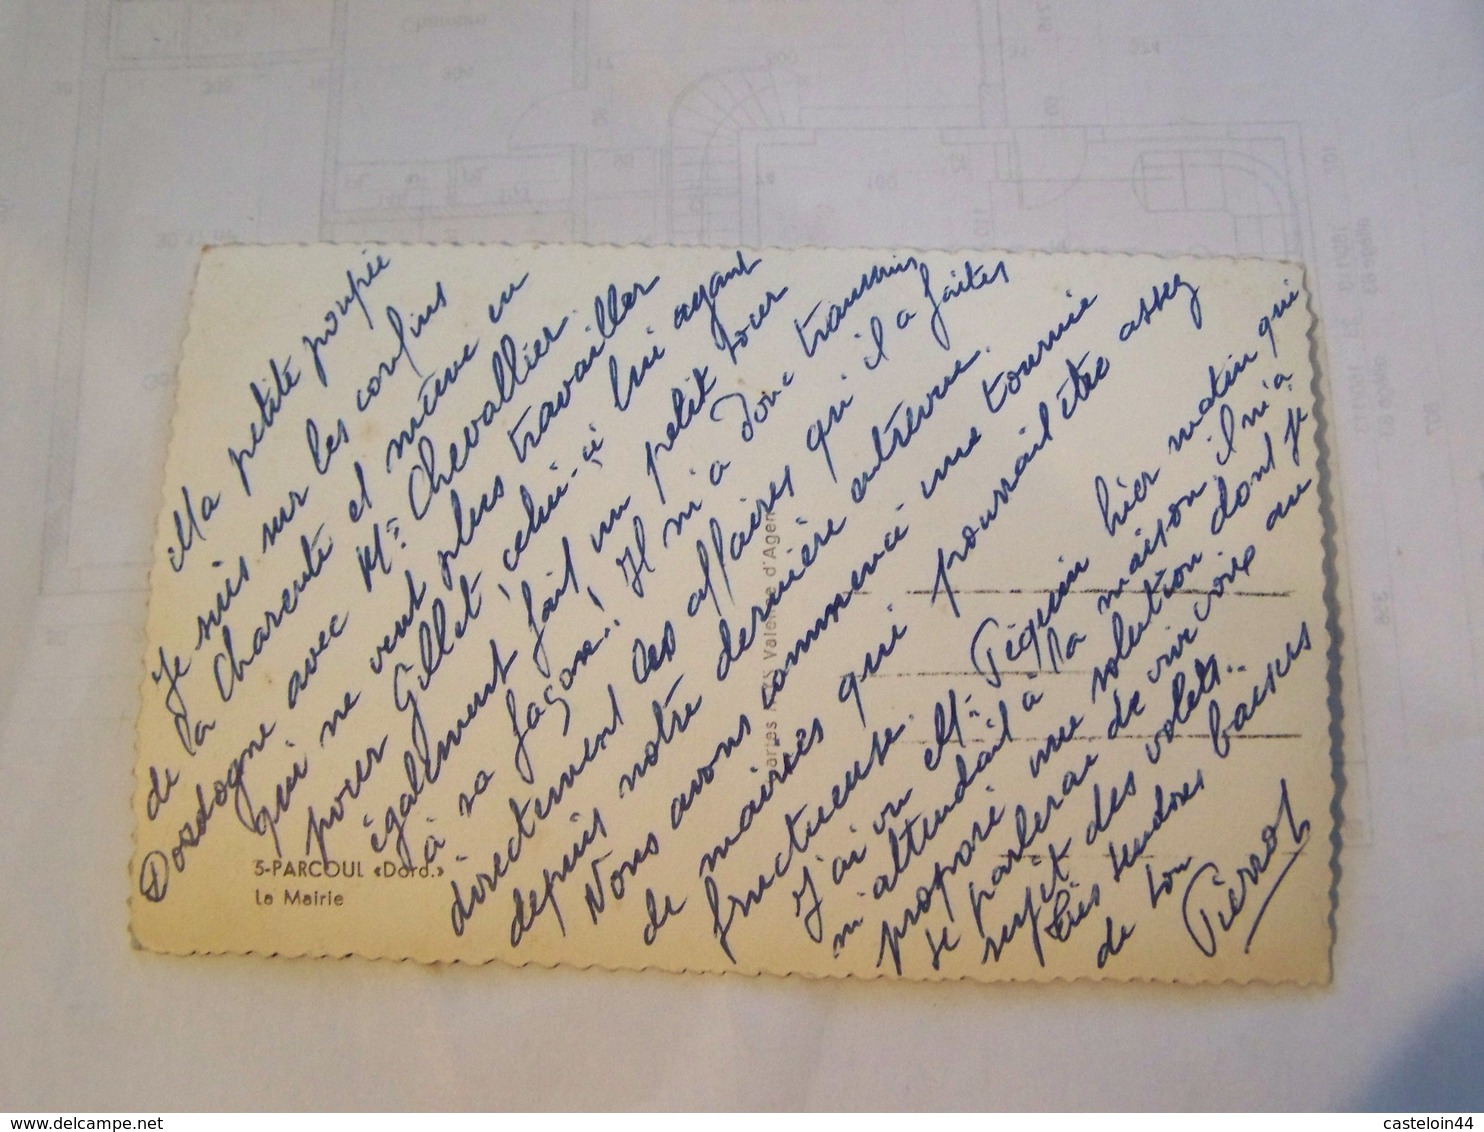 Ma petite poupée
Je suis sur les confins
de la Charente et même en
Dordogne avec Mr Chevallier.
qui ne veut plus travailler
pour Gillet celui-ci lui ayant
également fait un petit tour
à sa façon! Il m'a donc transmis
directement les affaires qu'il a faites
depuis notre dernière entrevue.
Nous avons commencé une tournée
de mairies qui pourrait être assez
fructueuse.
J'ai vu Mr Péquin hier matin qui
m'attendait à la maison il m'a
proposé une solution dont je
te parlerai de vive voix au
sujet des volets..
très tendres baisers
de ton
Pierrot
5-PARCOUL «Dord.»
La Mairie
Valence d'Agen
casteloin44